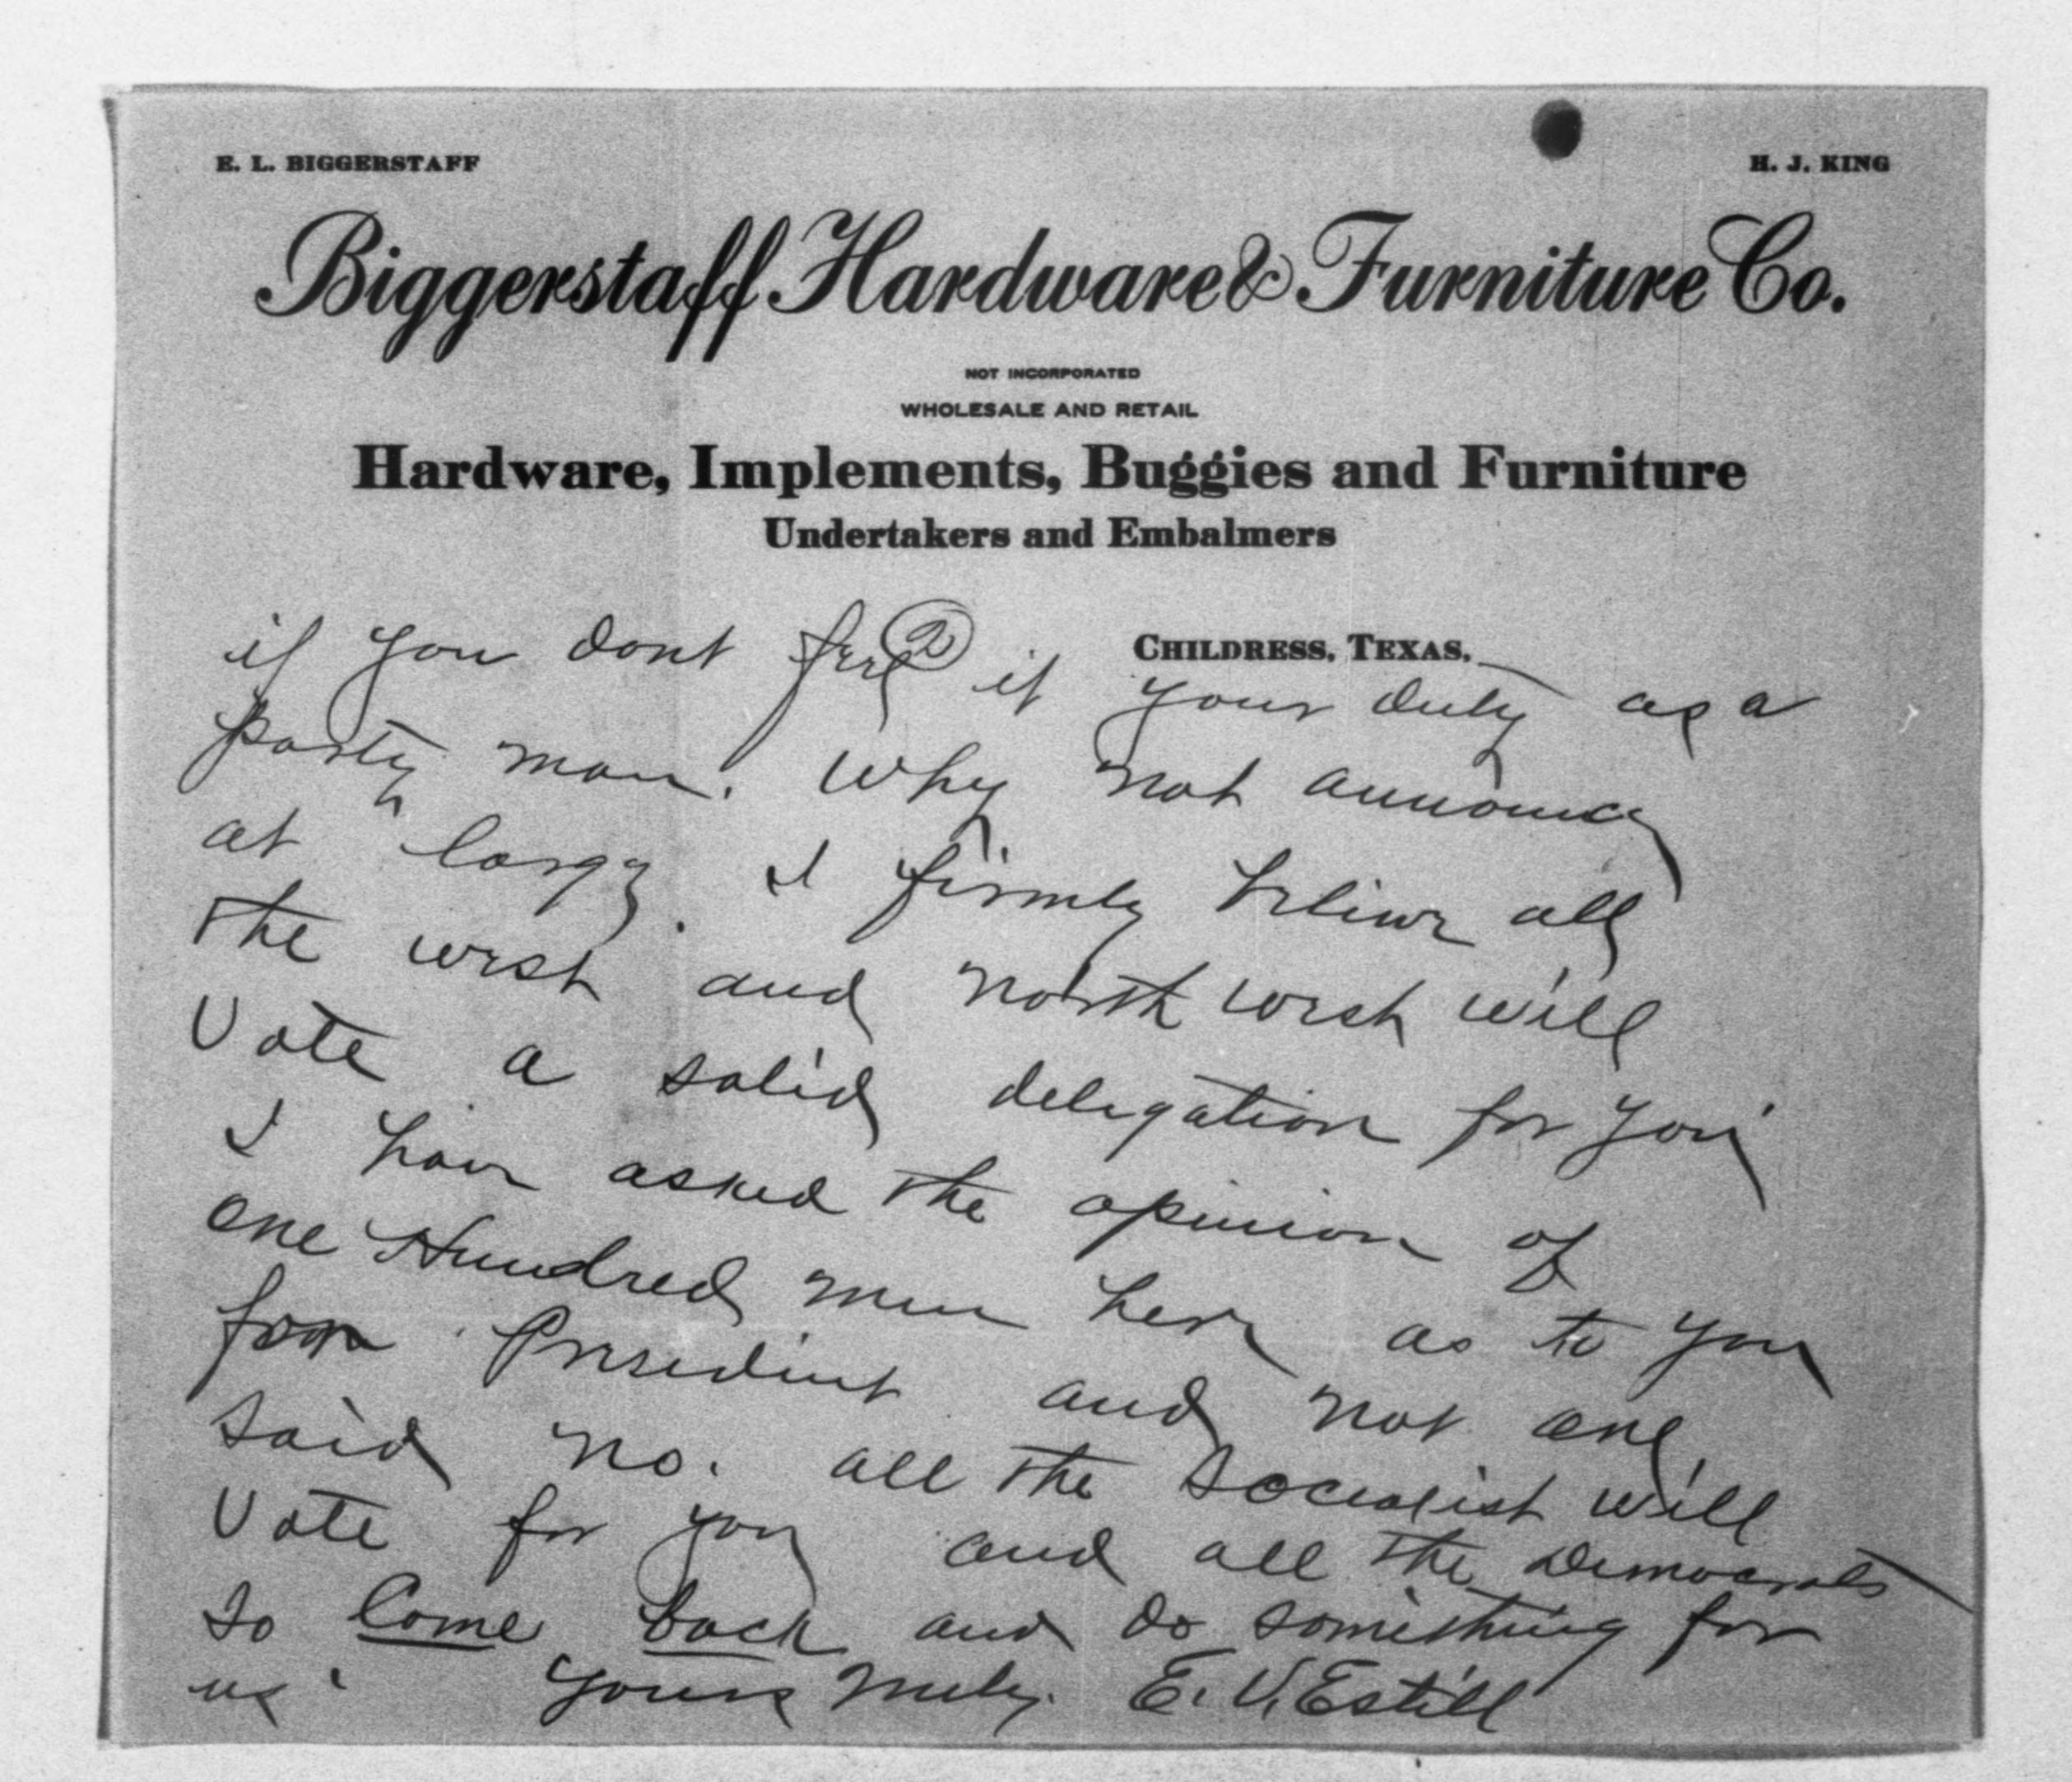 E. L. BIGGERSTAFF H. J. KING
Biggerstaff Hardware & Furniture Co.
NOT INCORPORATED
WHOLESALE AND RETAIL
Hardware, Implements, Buggies and Furniture
Undertakers and Embalmers
CHILDRESS, TEXAS.
2
if you dont feel it your duty as a
party man. Why not announce
at large. I firmly believe all
the west and north west will
Vote a solid delegation for you
I have asked the opinion of
one Hundred men here as to you
for President and not one
said no. all the Socialist will
Vote for you and all the Democrats
so Come back and do something for
us. yours truly. E. V. Estill